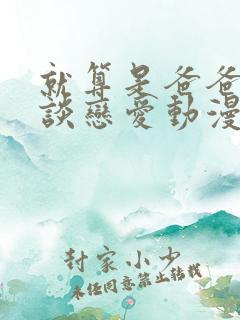 就算是爸爸
談戀愛動漫
封家小少
未经同意禁止转载